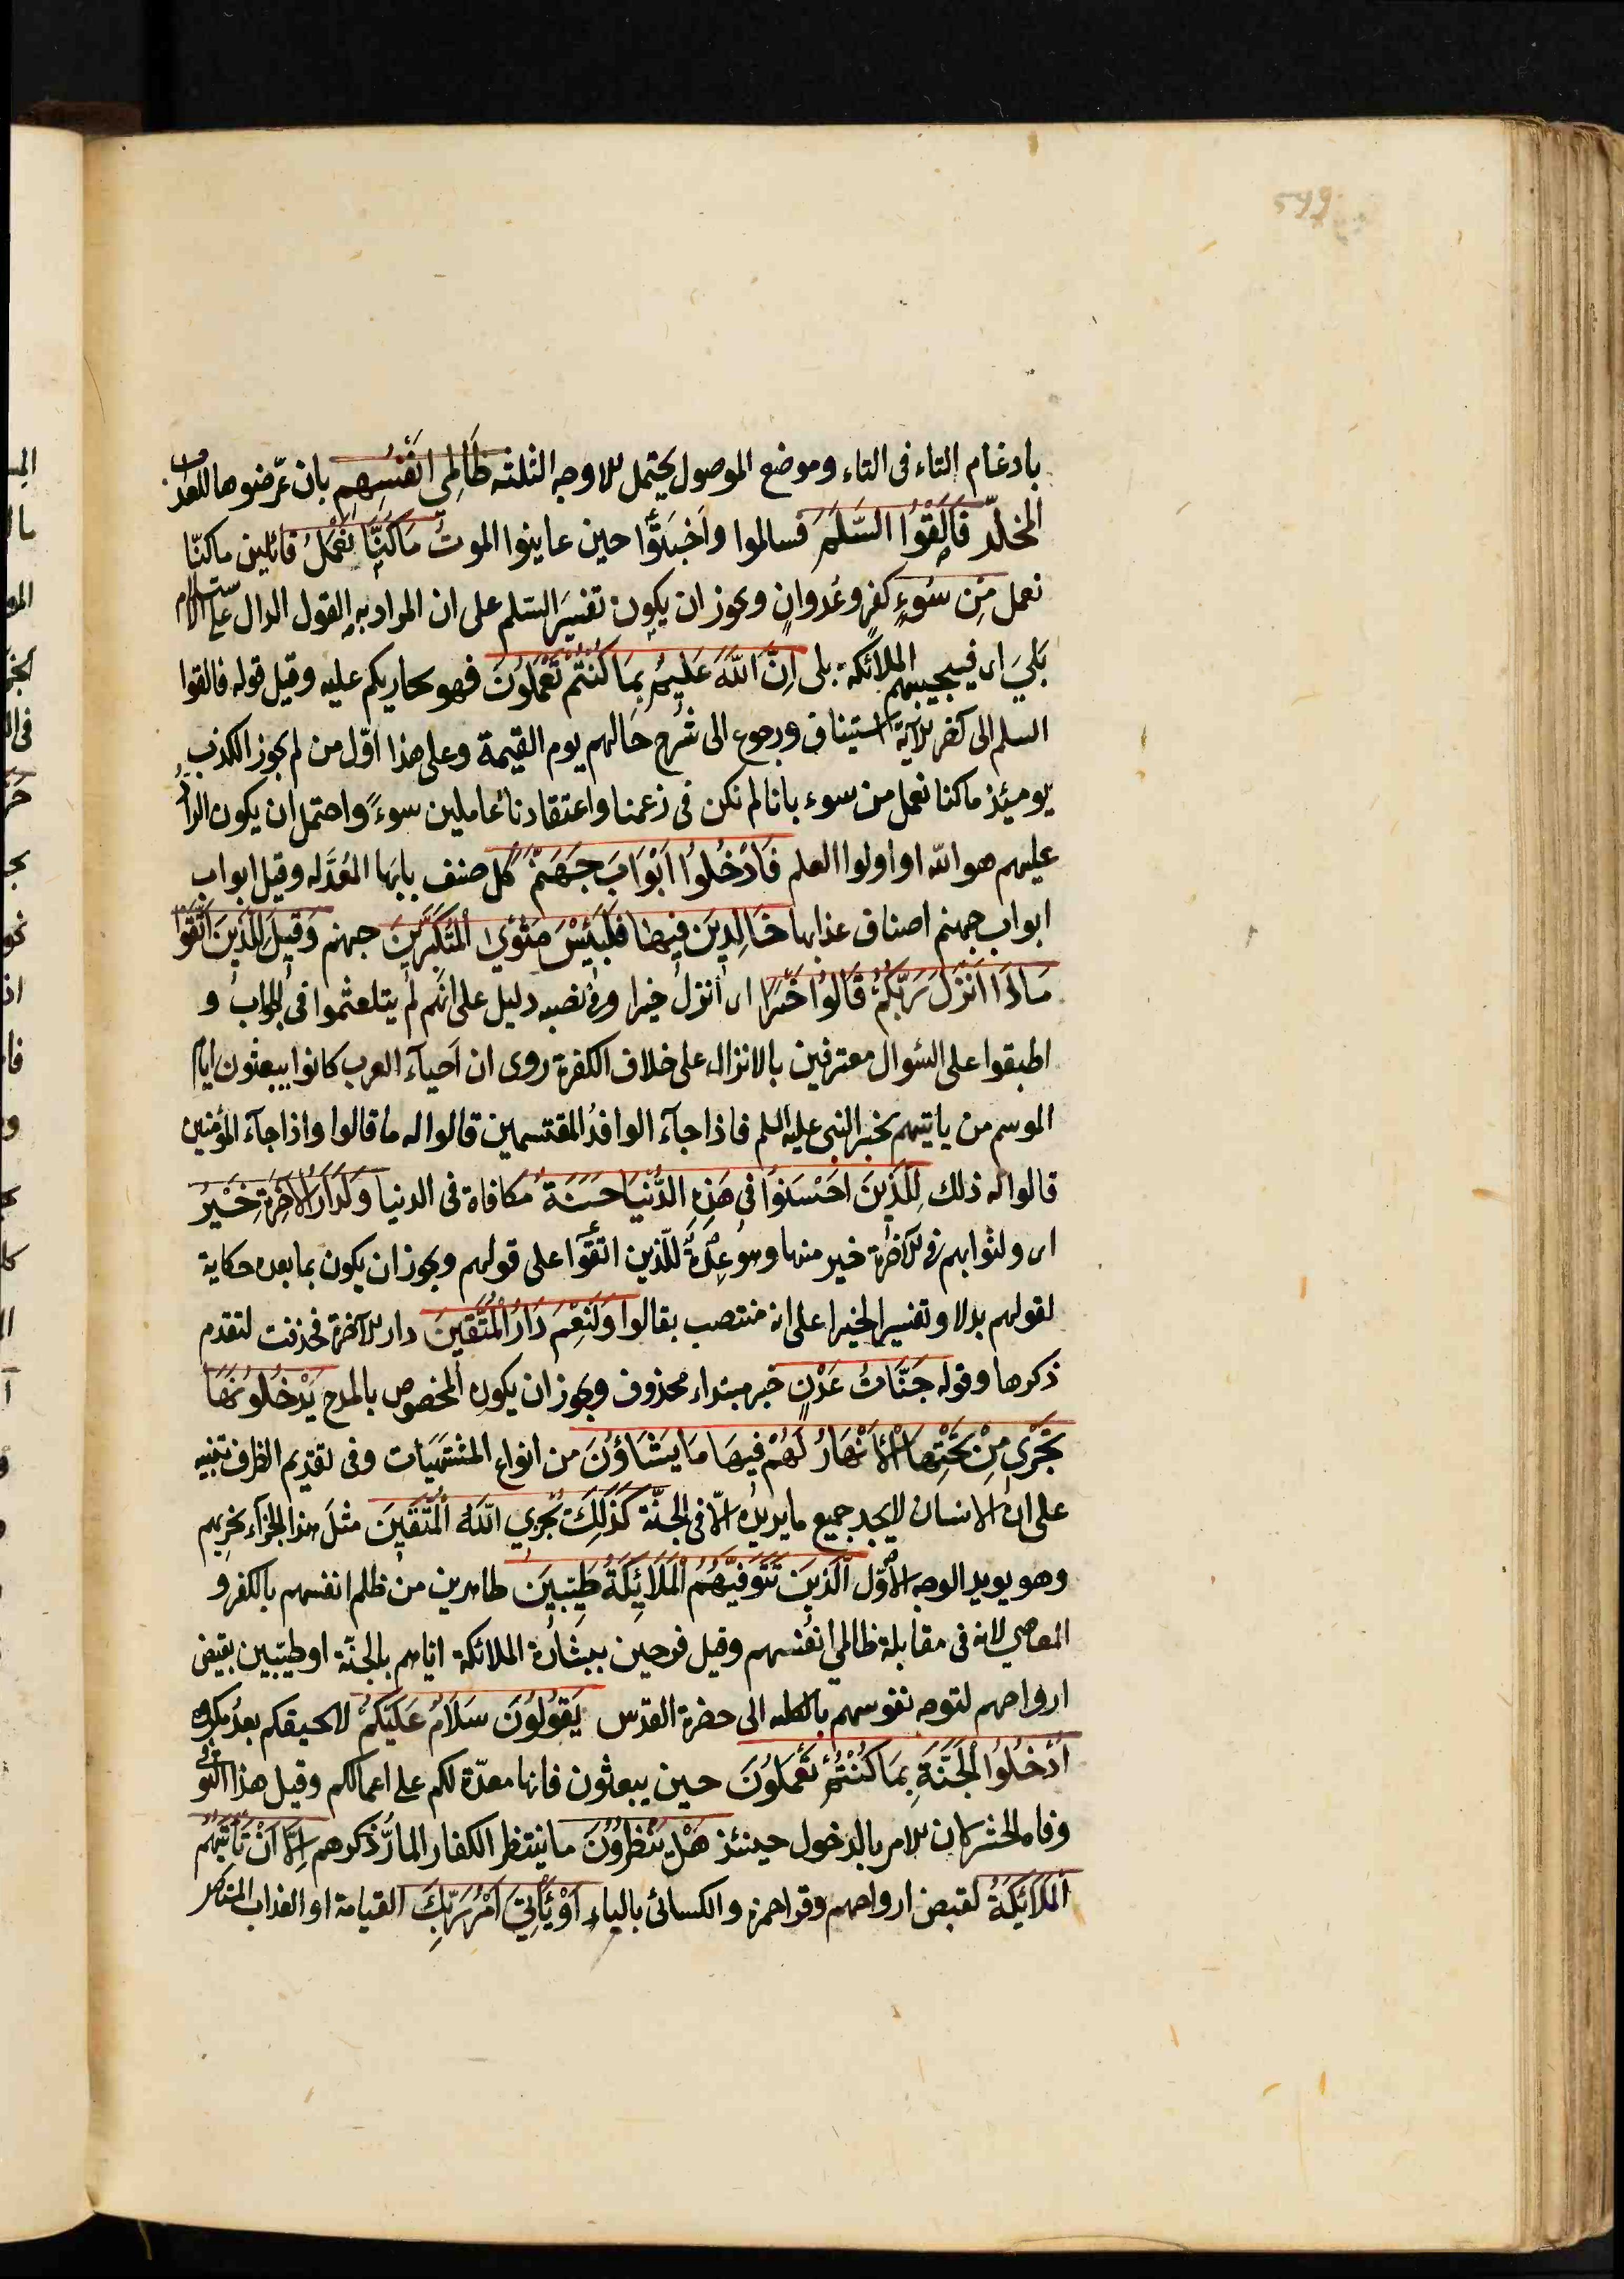 599
بادغام التاء فى التاء وموضع الموصول يحتمل للاوجه الثلثه ظَالِمِي اَنْفُسِهِم بان عرّضوها للعذاب
المخلّد فَاَلْقَوُا السَّلَمَ فسالموا واَخبَتُوا حين عاينوا الموتُ مَاكُنَّا نَعْمَلُ قائلين ماكنّا
نعمل مِن سُوءٍ كفرٍ وعُدوانٍ ويجوز ان يكون تفسيرَ السّلم على ان المراد به القول الدال على الاستسلام
بَلىَ اى فيجيبهم الملائكة بلى اِنَّ اللّٰهَ عَلِيمٌ بِمَا كُنْتُمْ تَعْمَلُونَ فهو يجازيكم عليه وقيل قوله فالقوا
السلم الى آخر الآية استيناف ورجوع الى شرح حَالهم يوم القيمة وعلى هذا اوّل من لم يجوز الكذب
يومئذ ماكنا نعمل من سوء بانا لم نكن فى زعمنا واعتقادنا عاملين سوءً واحتمل ان يكون الرادّ
عليهم هو الله او اولوا العلم فَادْخُلُوا اَبْوَابَ جَهَنَّمَ كل صنف بابَها المُعَدَّ له وقيل ابواب
ابواب جهنم اصناف عذابها خَالِدِينَ فِيهَا فَلَبِئْسَ مَثْوَى الْمُتَكَبِّرِينَ جهنم وَقِيلَ لِلَّذِينَ اتَّقَوْا
مَاذَا اَنْزَلَ رَبُّكُمْ قَالُوا خَيْرًا اى انزل خيرا وفى نصبه دليل على انهم لم يتلعثموا فى الجواب و
اطبقوا على السّوال معترفين بالانزال على خلاف الكفرة روى ان اَحياَء العرب كانوا يبعثون ايام
الموسم من ياتيهم بخبر النبى عليه السلم فاذا جاَء الوافدُ المقتسمين قالوا له ما قالوا واذا جاَء المؤمنين
قالوا له ذلك لِلَّذِينَ اَحْسَنُوا فِى هَذِهِ الدُّنْيَا حَسَنَةٌ مكافاة فى الدنيا وَلَدَارُ الآخِرَةِ خَيْرٌ
اى ولثوابهم فى الآخرة خير منها وهو عِدَةٌ للّذين اتقوا على قولهم ويجوز ان يكون بما بعده حكاية
لقولهم بدلا وتفسير الخيرا على انه منتصب بقالوا وَلَنِعْمَ دَارُ الْمُتَّقِينَ دار الآخرة فحذفت لتقدم
ذكرها وقوله جَنَّاتُ عَدْنٍ خبر مبتداء محذوف ويجوز ان يكون المخصوص بالمدح يَدْخُلُونَهَا
تَجْرِى مِنْ تَحْتِهَا الْاَنْهَارُ لَهُمْ فِيهَا مَا يَشَاؤُنَ من انواع المشتهيات وفى تقديم الظرف تنبيه
على ان الانسان لا يجد جميع ما يريده الّا فى الجنّة كَذَلِكَ يَجْزِي اللّٰهُ الْمُتَّقِينَ مثلَ هذا الجزآء يجزيهم
وهو يويد الوجه الاوّل اَلَّذِينَ تَتَوَفَّيهُمُ الْمَلَائِكَةُ طَيِّبِينَ طاهرين من ظلم انفسهم بالكفر و
المعاصي لانه فى مقابلة ظالمي انفسهم وقيل فرحين ببشارة الملائكة اياهم بالجنّة او طيّبين بقبض
ارواحهم لتوجه نفوسهم بالكليه الى حضرة القدس يَقُولُونَ سَلَامٌ عَلَيْكُمْ لا يحيقكم بعدُ مكروه
اُدْخُلُوا الْجَنَّةَ بِمَا كُنْتُمْ تَعْمَلُونَ حين يبعثون فانها معدّة لكم على اعمالكم وقيل هذا التوفى
وفاة الحشر لان الامر بالدخول حينئذ هَلْ يَنْظُرُونَ ما ينتظر الكفار المارُّ ذكرهم اِلَّا اَنْ تَاْتِيَهُمُ
الْمَلَائِكَةُ لقبض ارواحهم وقرا حمزه والكسائى بالياء اَوْ يَأْتِيَ اَمْرُ رَبِّكَ القيامة او العذاب المستاصل